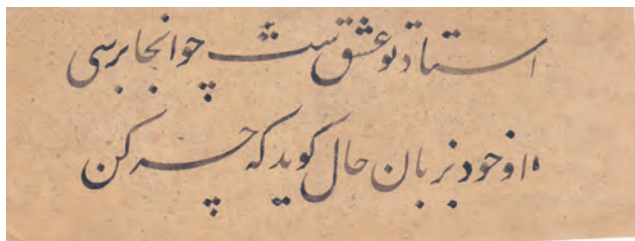 استاد تو عشقست چو آنجا برسی
او خود بزبان حال گوید که چه کن